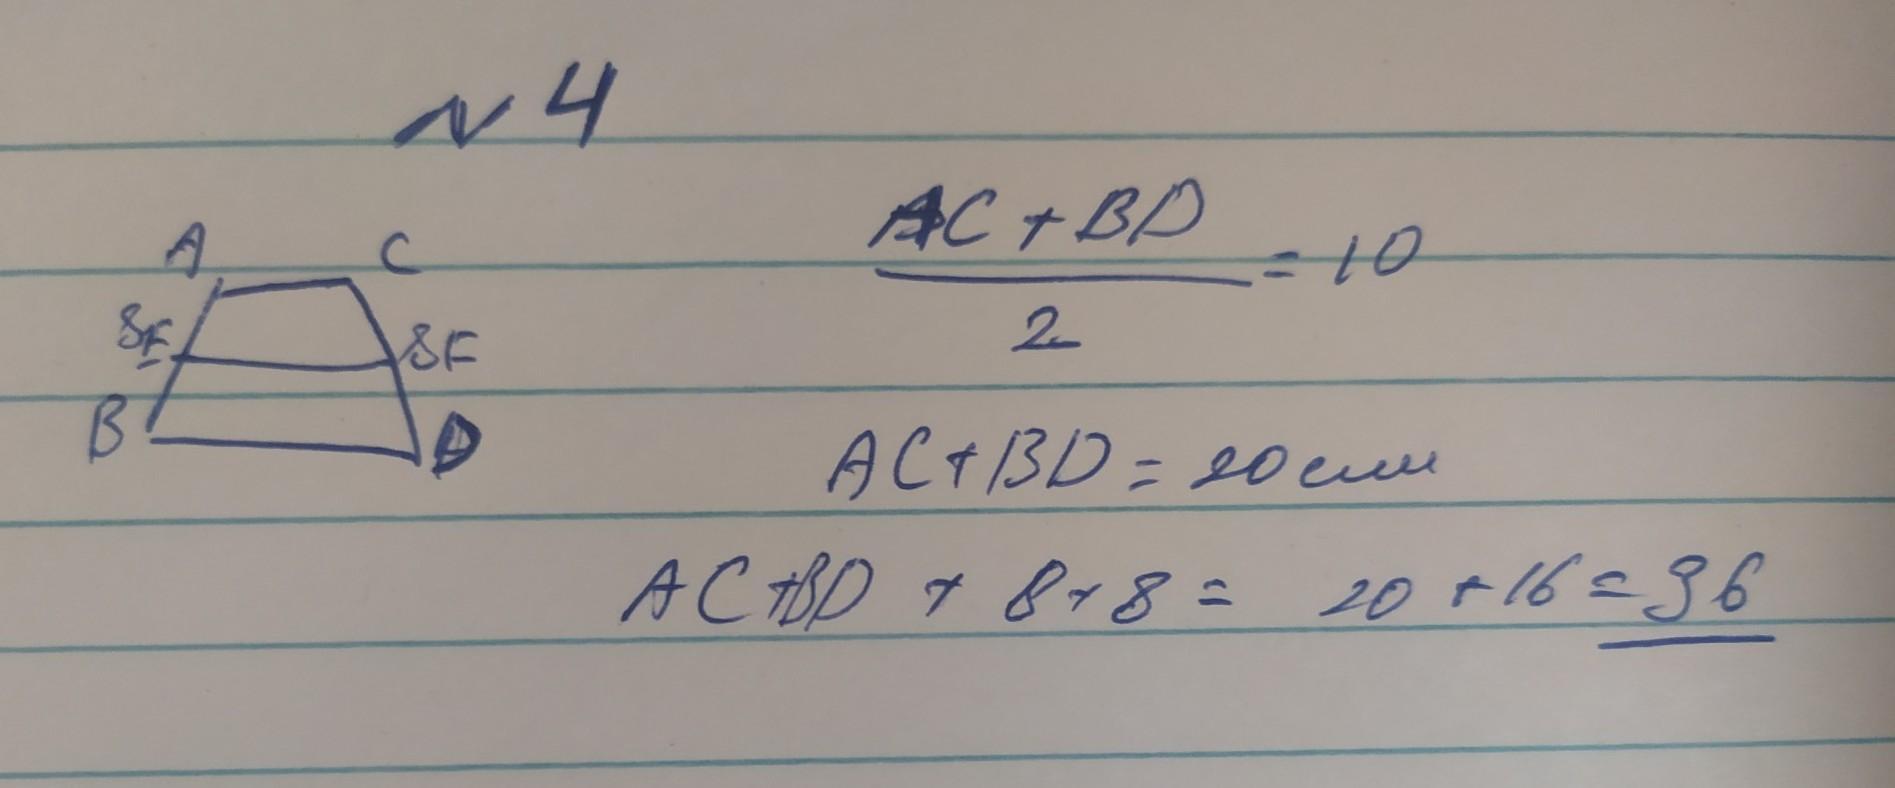 N 4
A C
8E 8F
B D
AC + BD
2
= 10
AC + BD = 20 см
AC + BD + 8 + 8 = 20 + 16 = 36